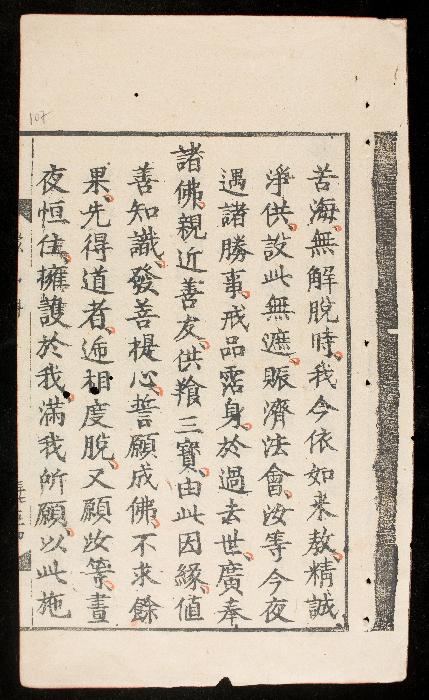 苦海無解脫時我今依如來教精誠
淨供設此無遮賑濟法會汝等今夜
遇諸勝事戒品霑身於過去世廣奉
諸佛親近善友供養三寶由此因緣值
善知識發菩提心誓願成佛不求餘
果先得道者逓相度脫又願汝等晝
夜恒住擁護於我滿我所願以此施
107